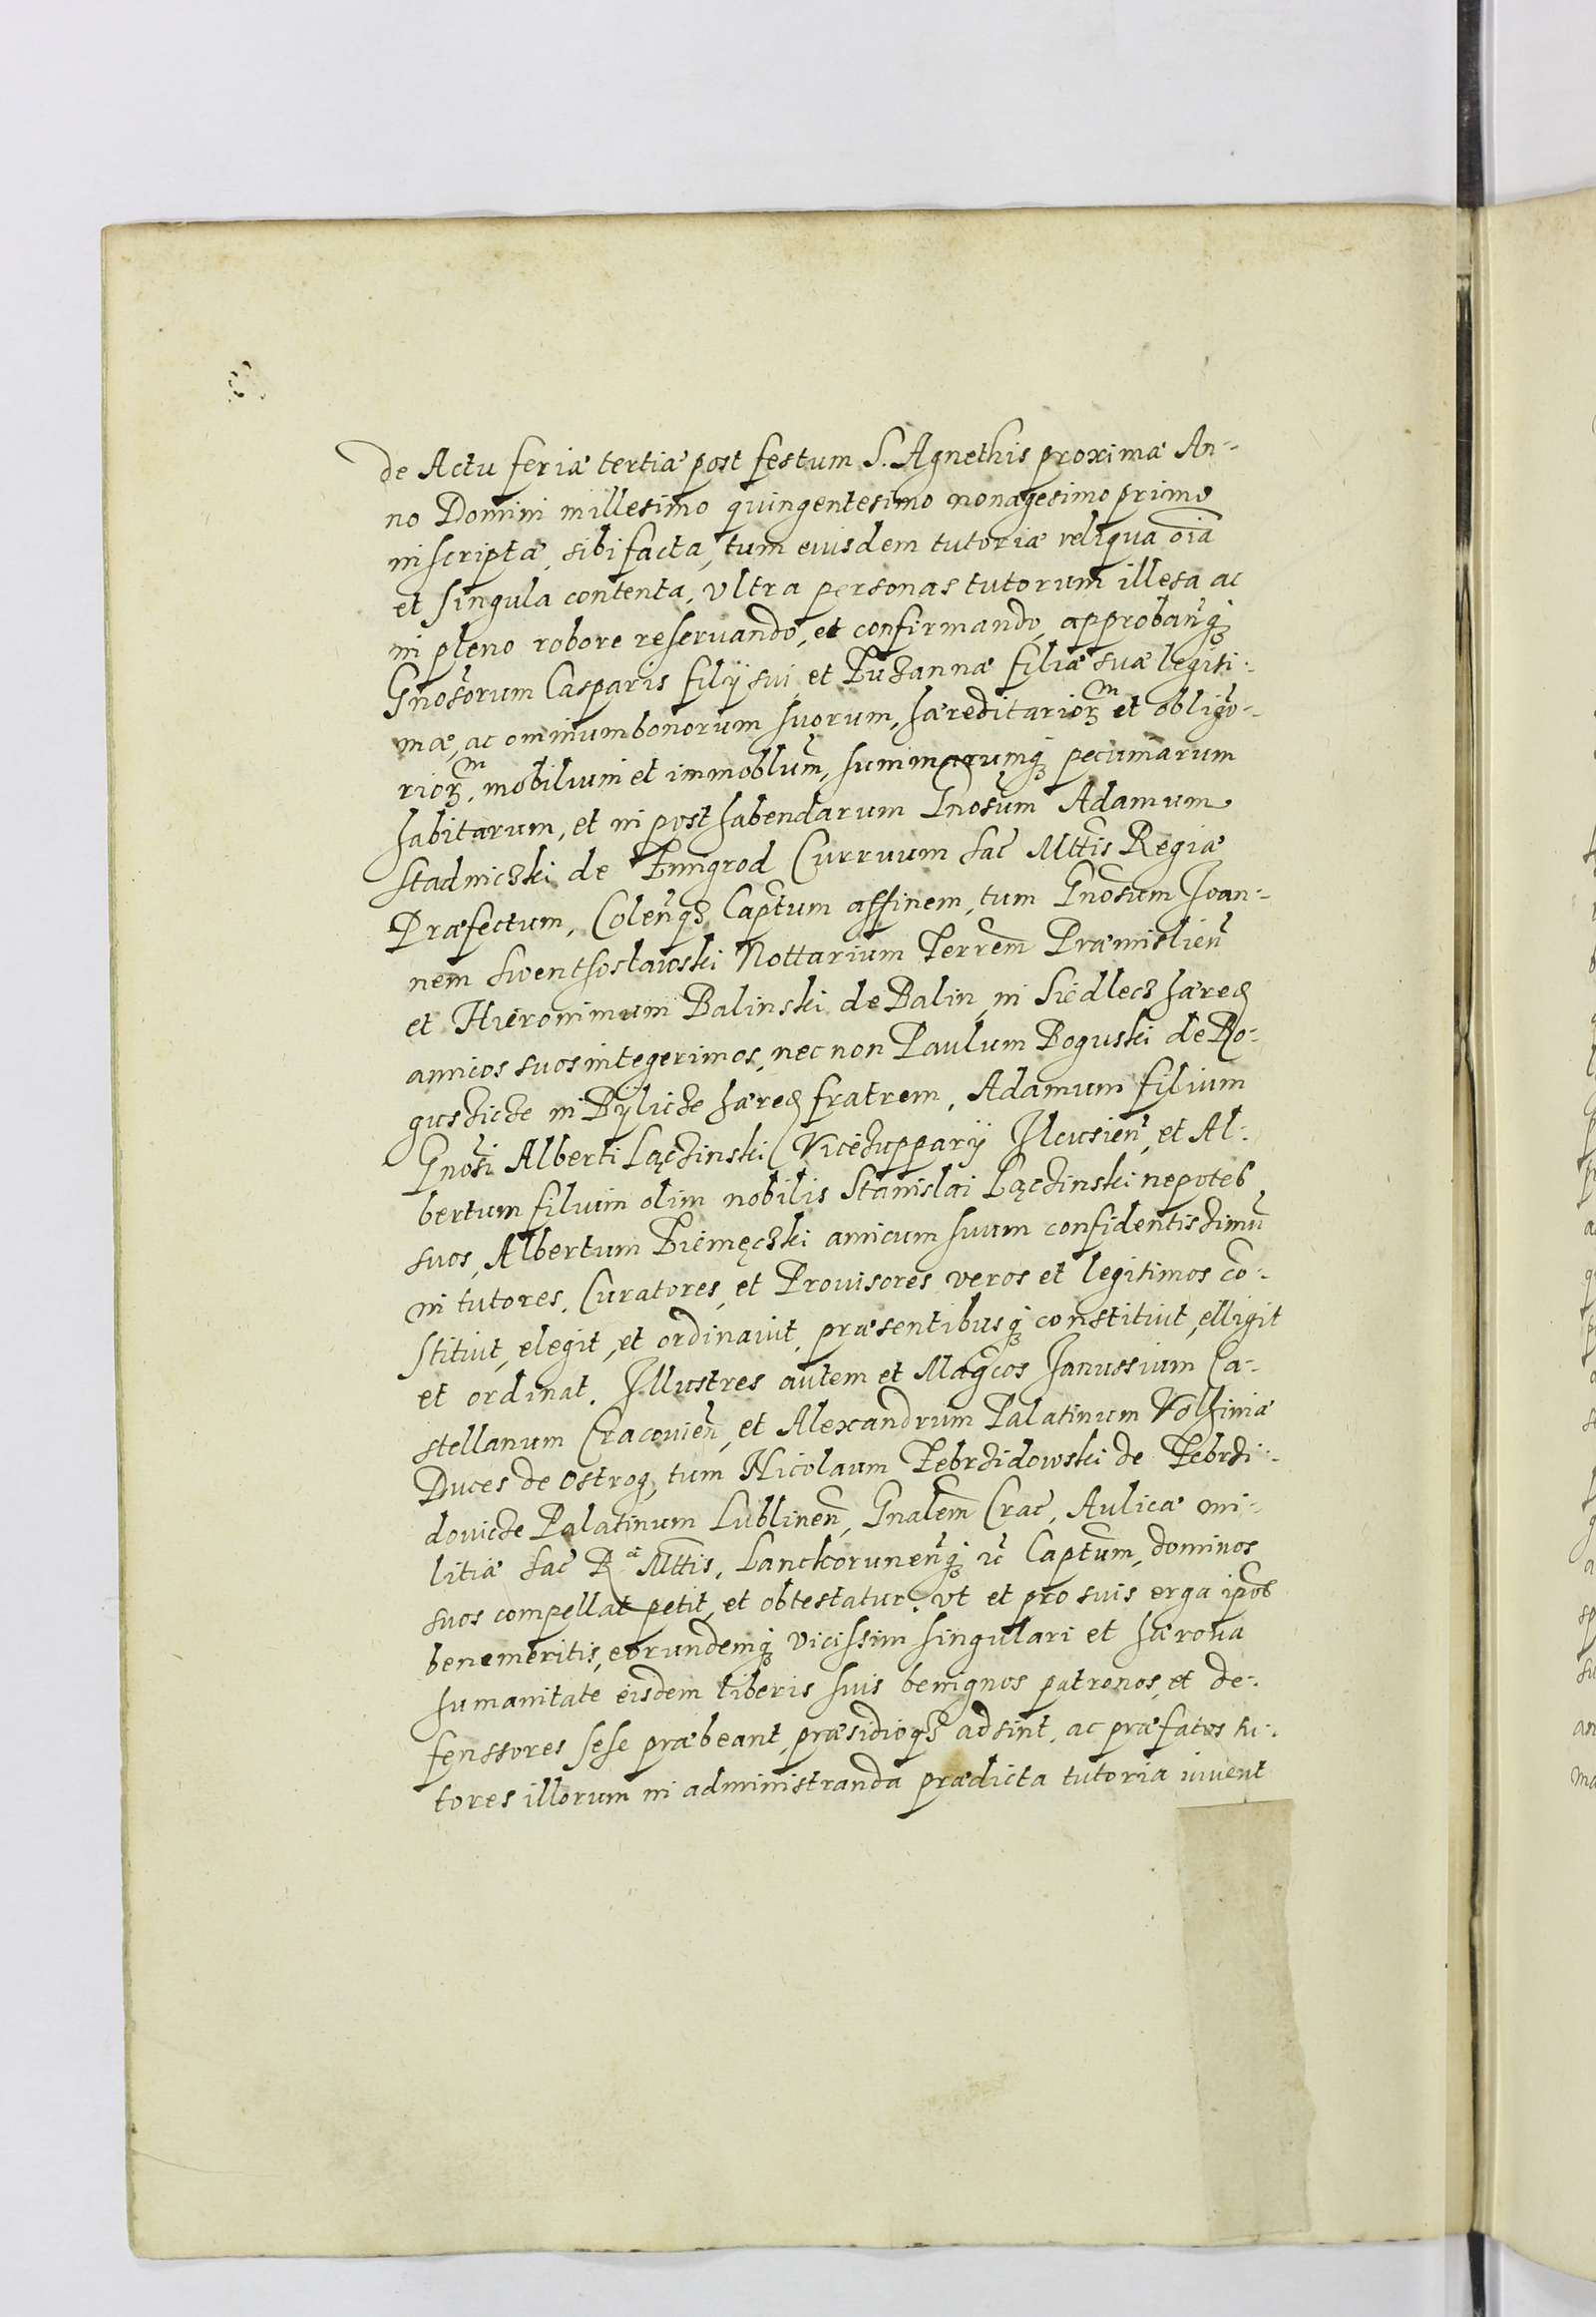 de Actu feriæ tertiæ post festum S. Agnethis proximæ An-
no Domini millesimo quingentesimo nonagesimo primo
inscripta, sibi facta, tum eiusdem tutoriæ reliqua oĩa
et singula contenta, Vltra personas tutorum illesa ac
in pleno robore reservando, et confirmando, approbanq̃
Gnosorum Casparis filij sui, et Zuzannæ filiæ suæ legiti-
mæ, ac omnium bonorum suorum, hæreditarior̃m et obligo-
rior̃m, mobilium et immoblum̃, summarumq̃ pecuniarum
habitarum, et in post habendarum Gnosum Adamum
Stadniczki de Zmigrod Curruum Sac̃ Mttis Regiæ
Præfectum, Colenq̃ Captum affinem, tum Gnosum Joan-
nem Swenthosławski Nottarium Terrem̃ Præmislieñ
et Hieronimum Balinski de Balin, in Siedlecz hæred
amicos suos integerimos, nec non Paulum Boguski de Bo-
guszicze in Byliche hæred fratrem, Adamum filium
Gnosi Alberti Łączinski Vicezupparij Ilcusieñ, et Al-
bertum filium olim nobilis Stanislai Łączinski nepotes
suos, Albertum Ziemęczki amicum suum confidentiszimũ
in tutores, Curatores, et Prouisores veros et legitimos cõ-
stituit, elegit, et ordinauit, præsentibusq̃ constituit, elligit
et ordinat. Illustres autem et Mag̃cos Janussium Ca-
stellanum Cracouieñ, et Alexandrum Palatinum Volhiniæ
Duces de Ostrog, tum Nicolaum Zebrzidowski de Zebrzi-
dovicze Palatinum Lublineñ, Gnalem̃ Crac̃, Aulicæ mi-
litiæ Sac̃ R æ Mttis, Lanckoruneñq̃ ꝛc̃ Captum̃, dominos
suos compellat petit, et obtestatur. vt et pro suis erga ip̃os
benemeritis, eorundemq̃ vicissim singulari et hæroua
humanitate eisdem liberis suis benignos patronos, et de-
fenssores sese præbeant, præsidioq̃ adsint, ac præfatos tu-
tores illorum in administranda prædicta tutoria iuvent